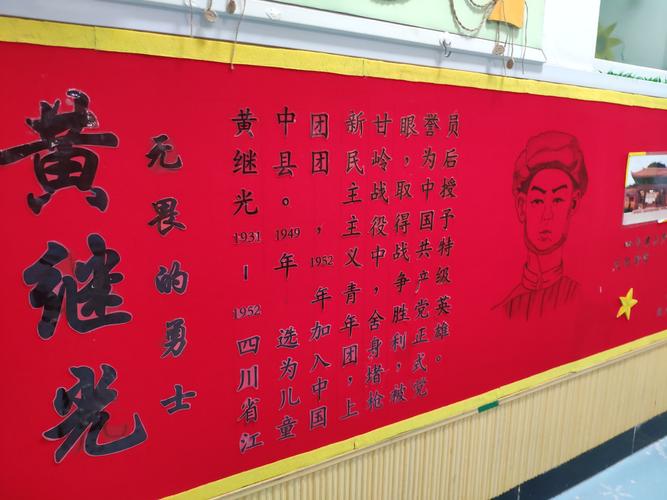 黄继光
无畏的勇士
黄继光1931-1952四川省江
中县。1949年 选为儿童
团团，1952年加入中国
新民主主义青年团，上
甘岭战役中，舍身堵枪
眼，取得战争胜利，被
誉为中国共产党正式党
员后授予特级英雄。